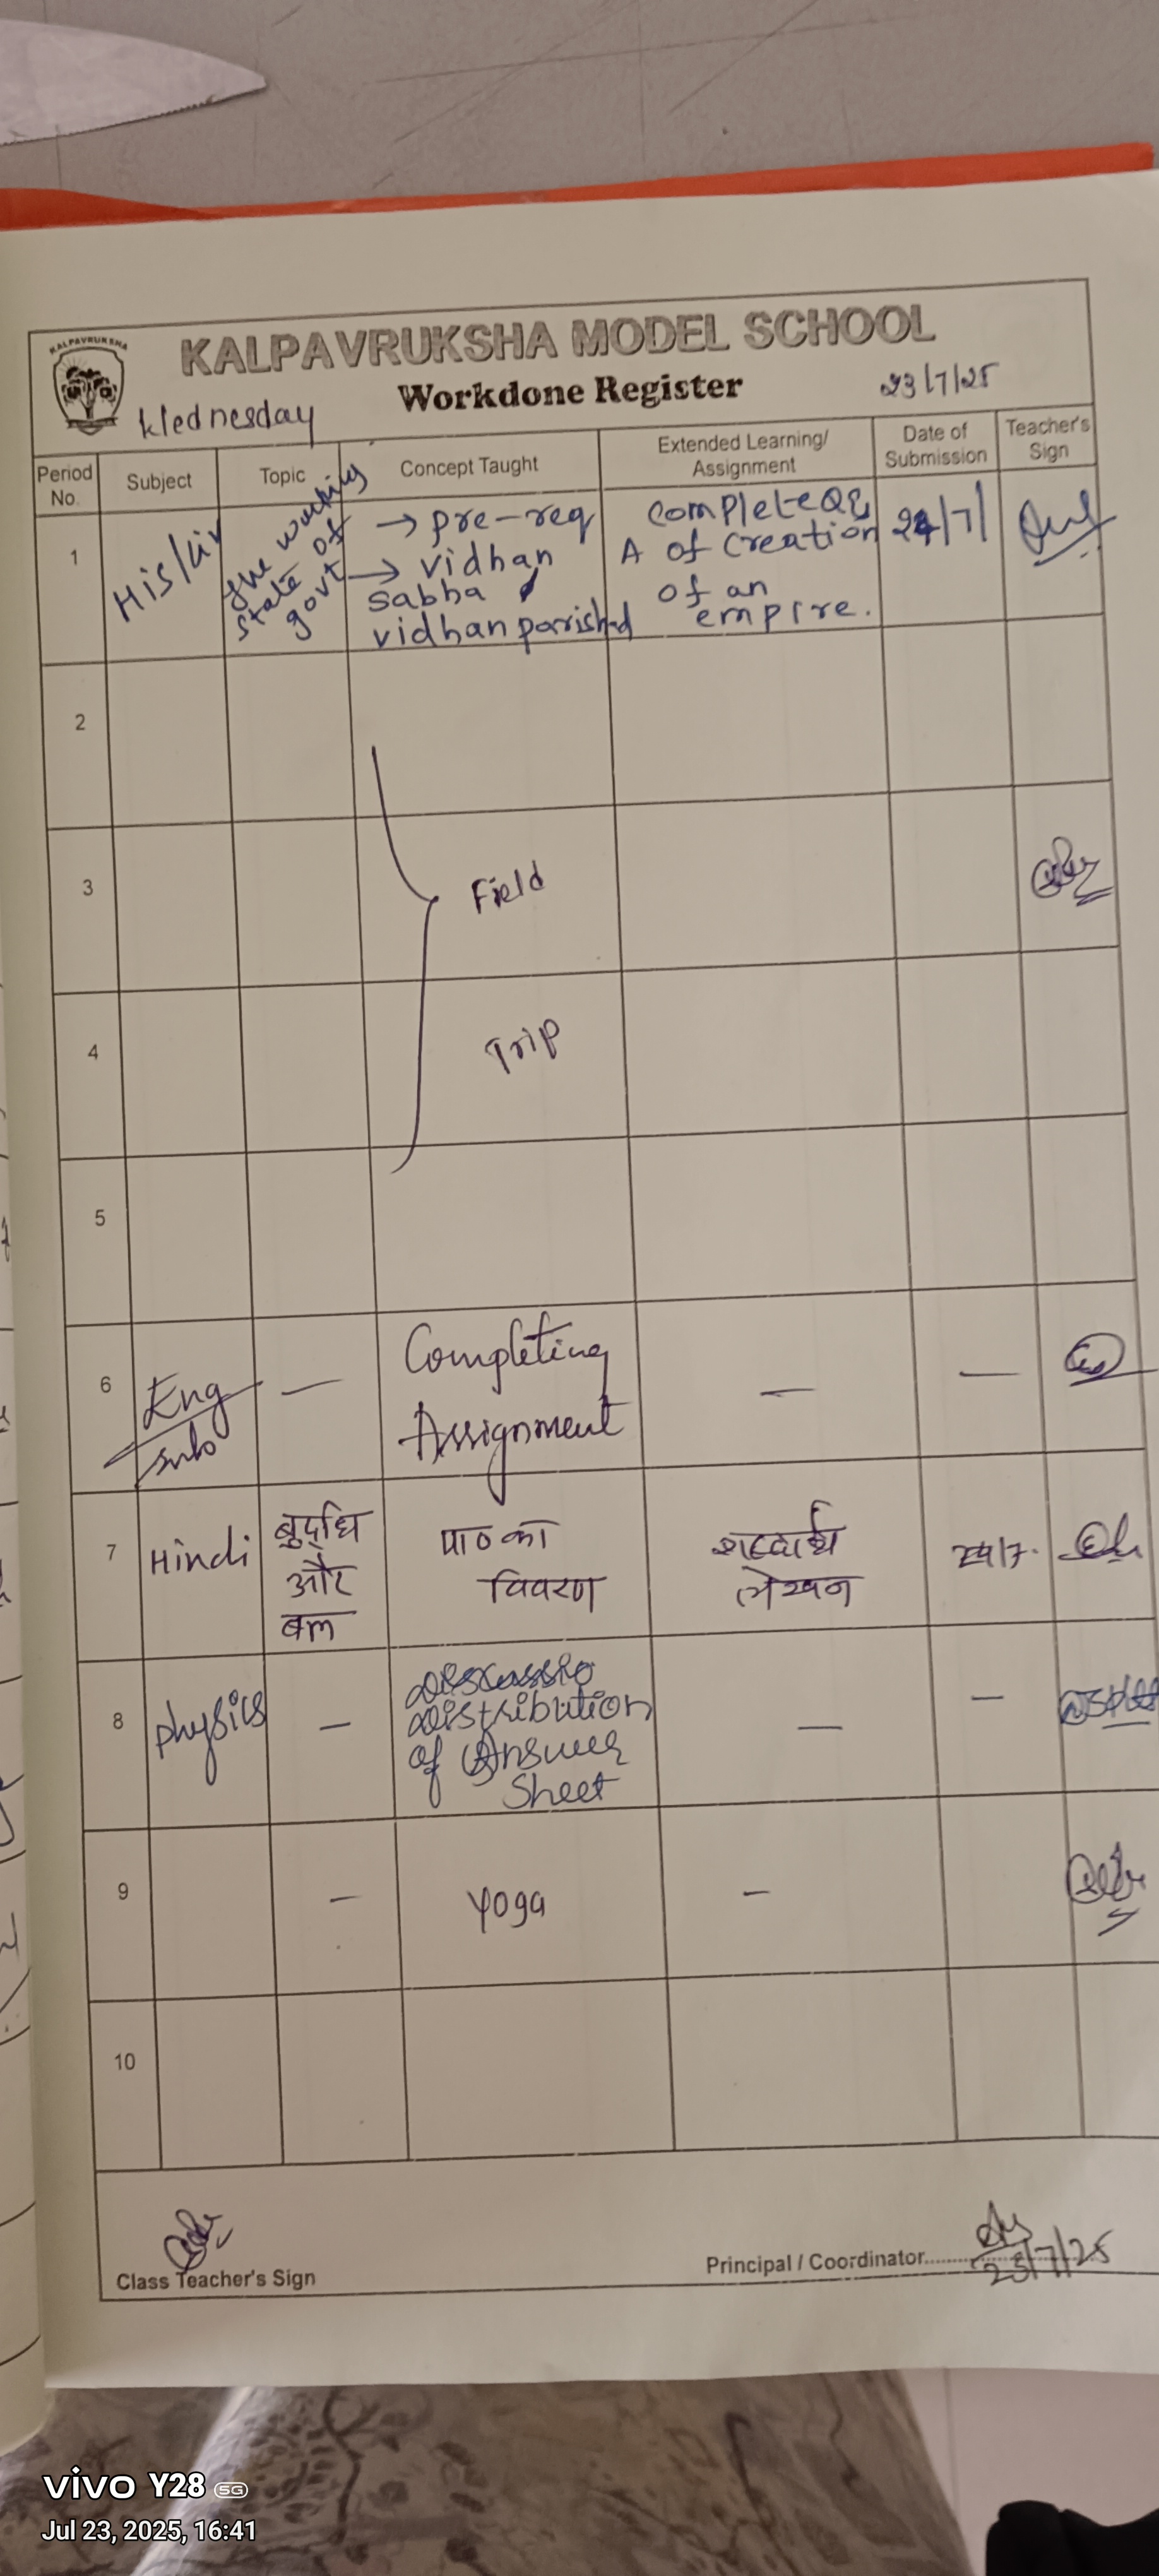 KALPAVRUKSHA
KALPAVRUKSHA MODEL SCHOOL
Workdone Register
Wednesday
23/7/25
Period No.
Subject
Topic
Concept Taught
Extended Learning/ Assignment
Date of Submission
Teacher's Sign
1
His/Civ
The working
state of
govt
→ pre-req
→ vidhan
sabha
vidhan parishad
complete Q&
A of Creation
of an
empire.
24/7/
2
3
Field
4
Trip
5
6
Eng
sub
—
Completing
Assignment
—
—
7
Hindi
बुद्धि
और
बल
पाठ का
विवरण
शब्दार्थ
लेखन
24/7.
8
physics
—
Discussio
Distribution
of Answer
Sheet
—
—
9
—
Yoga
—
10
Class Teacher's Sign
Principal / Coordinator
23/7/25
vivo Y28 5G
Jul 23, 2025, 16:41